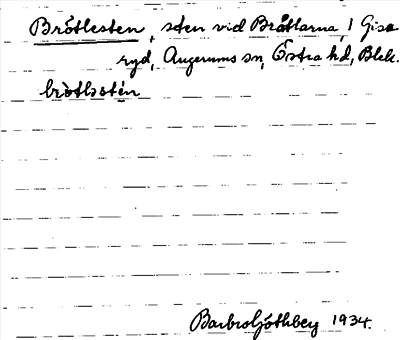 Bråtlesten, sten vid Bråtlarna, i Gisa
ryd, Augerums sn, Östra hd, Blek.
bròtlèstén
Barbro Göthberg 1934.